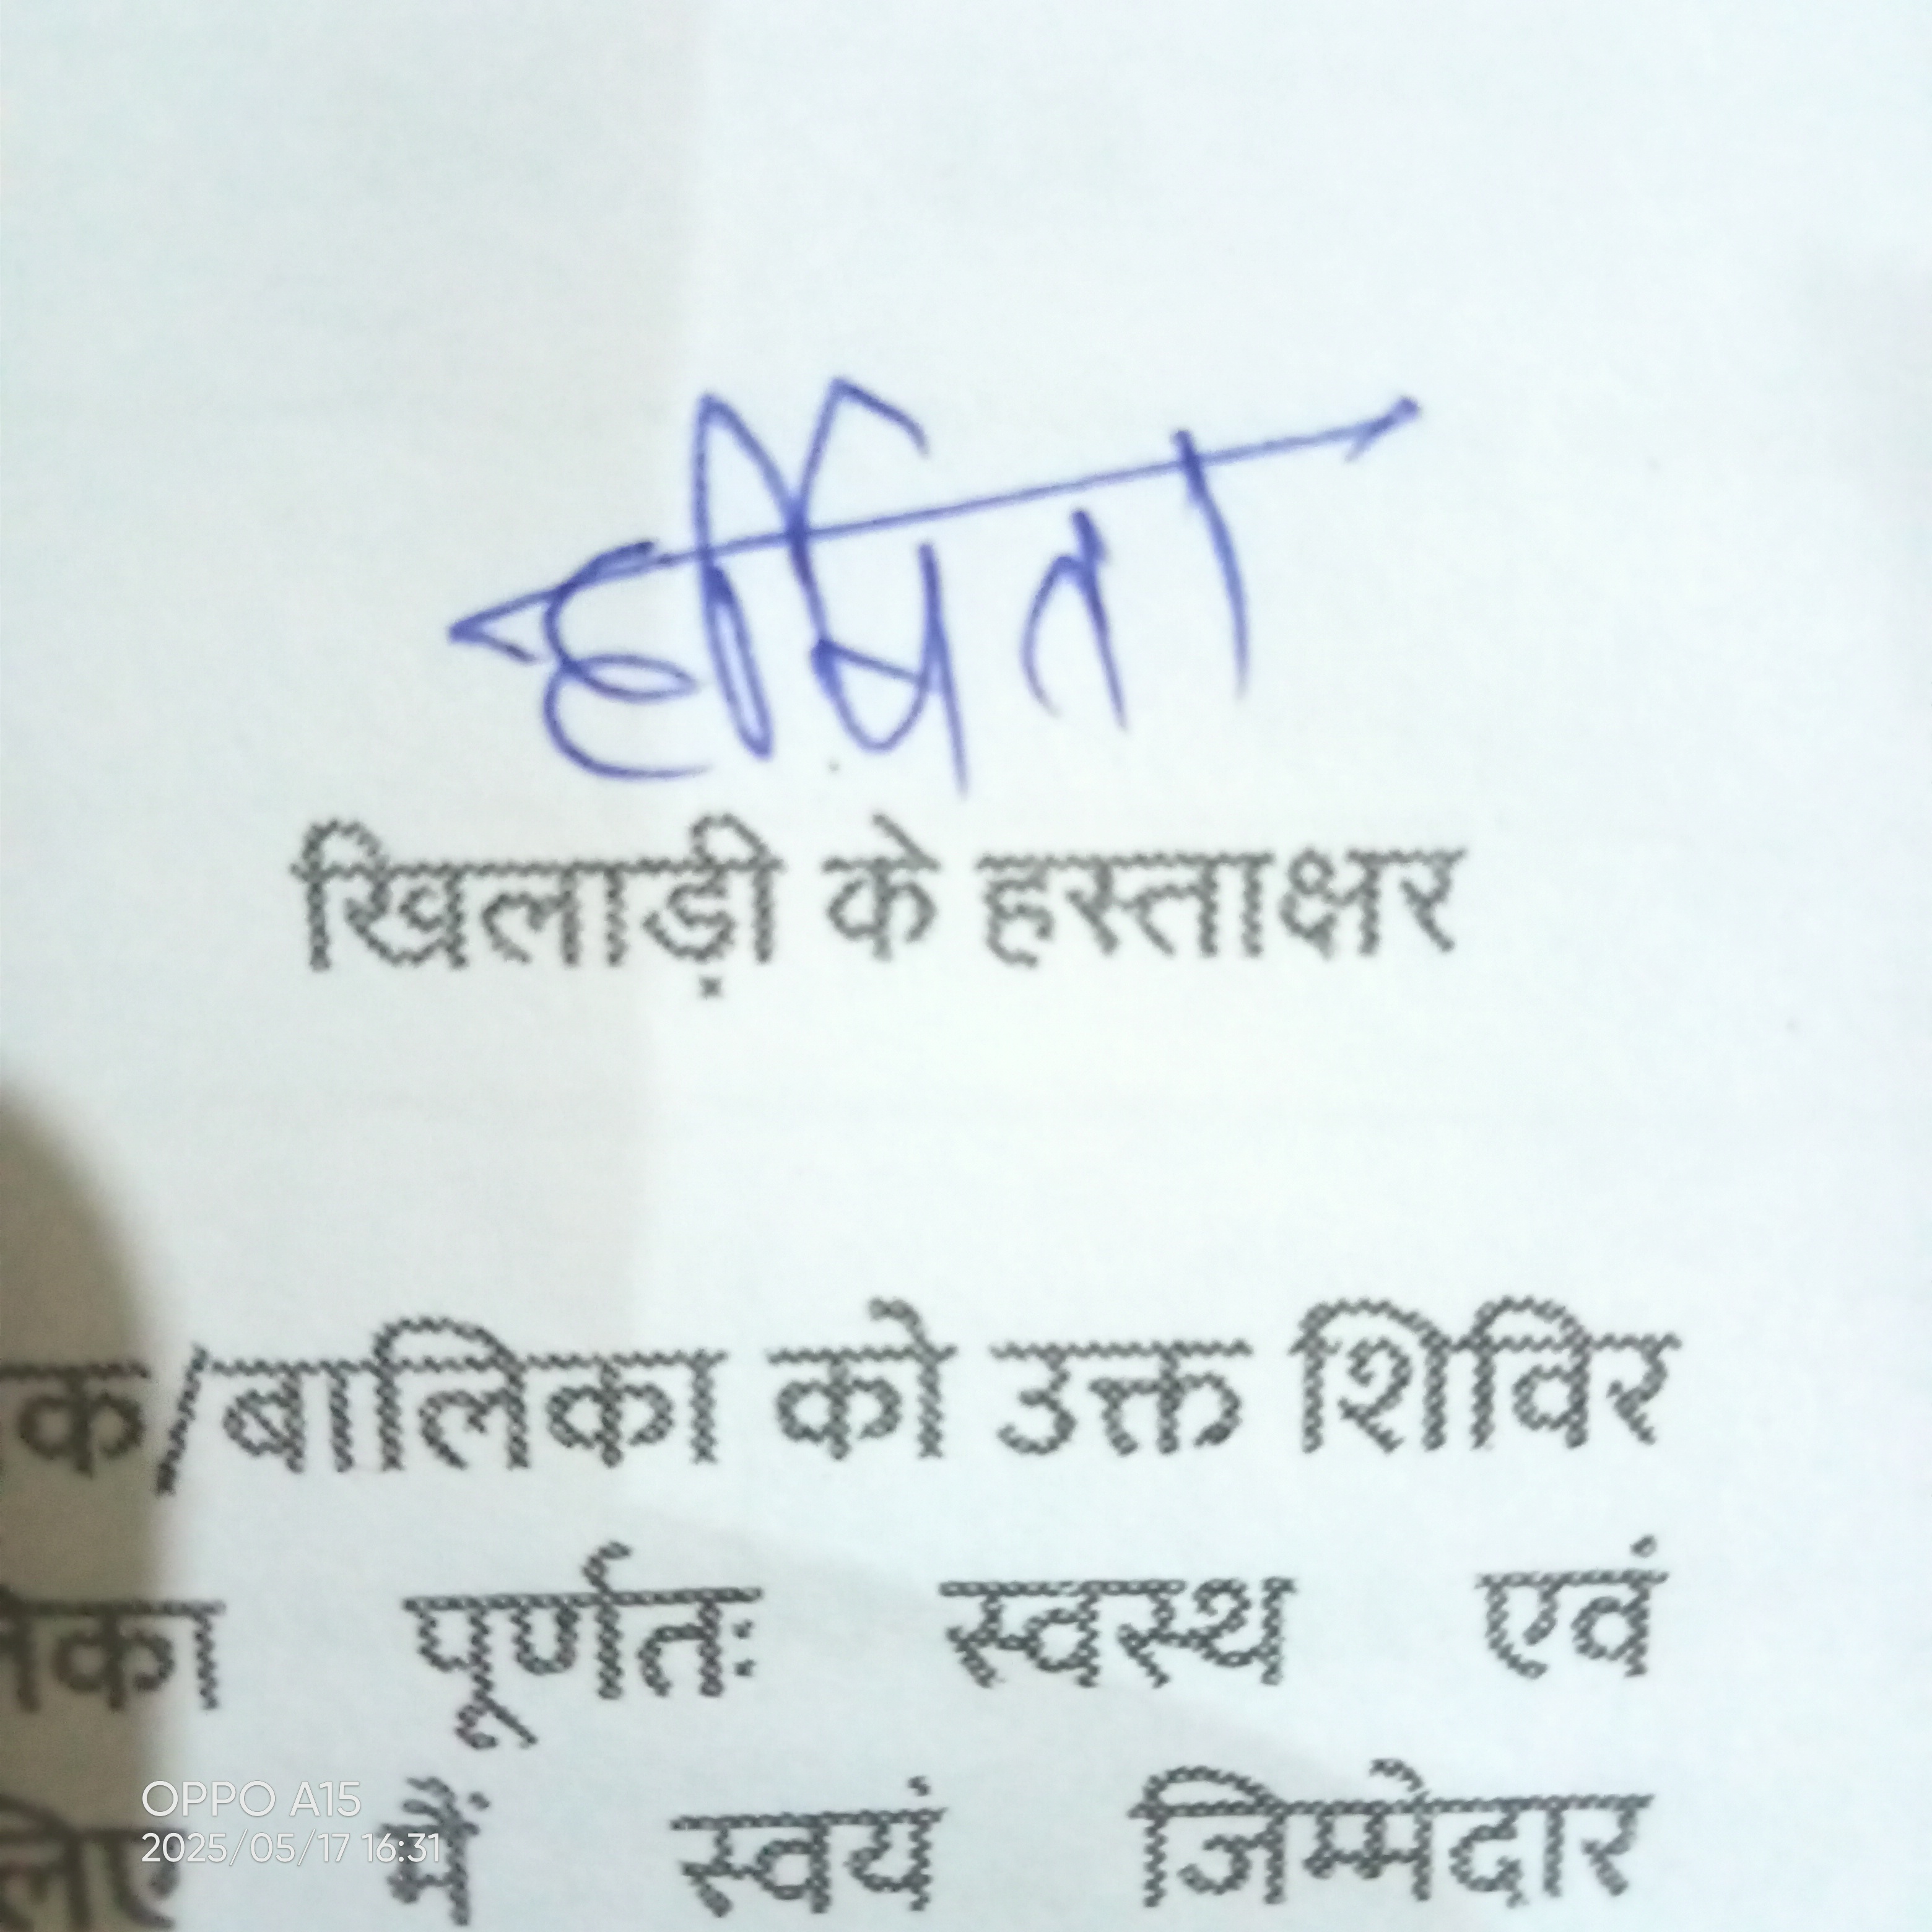 हर्षिता
खिलाड़ी के हस्ताक्षर
क/बालिका को उक्त शिविर
का पूर्णतः स्वस्थ एवं
लिए मैं स्वयं जिम्मेदार
OPPO A15
2025/05/17 16:31